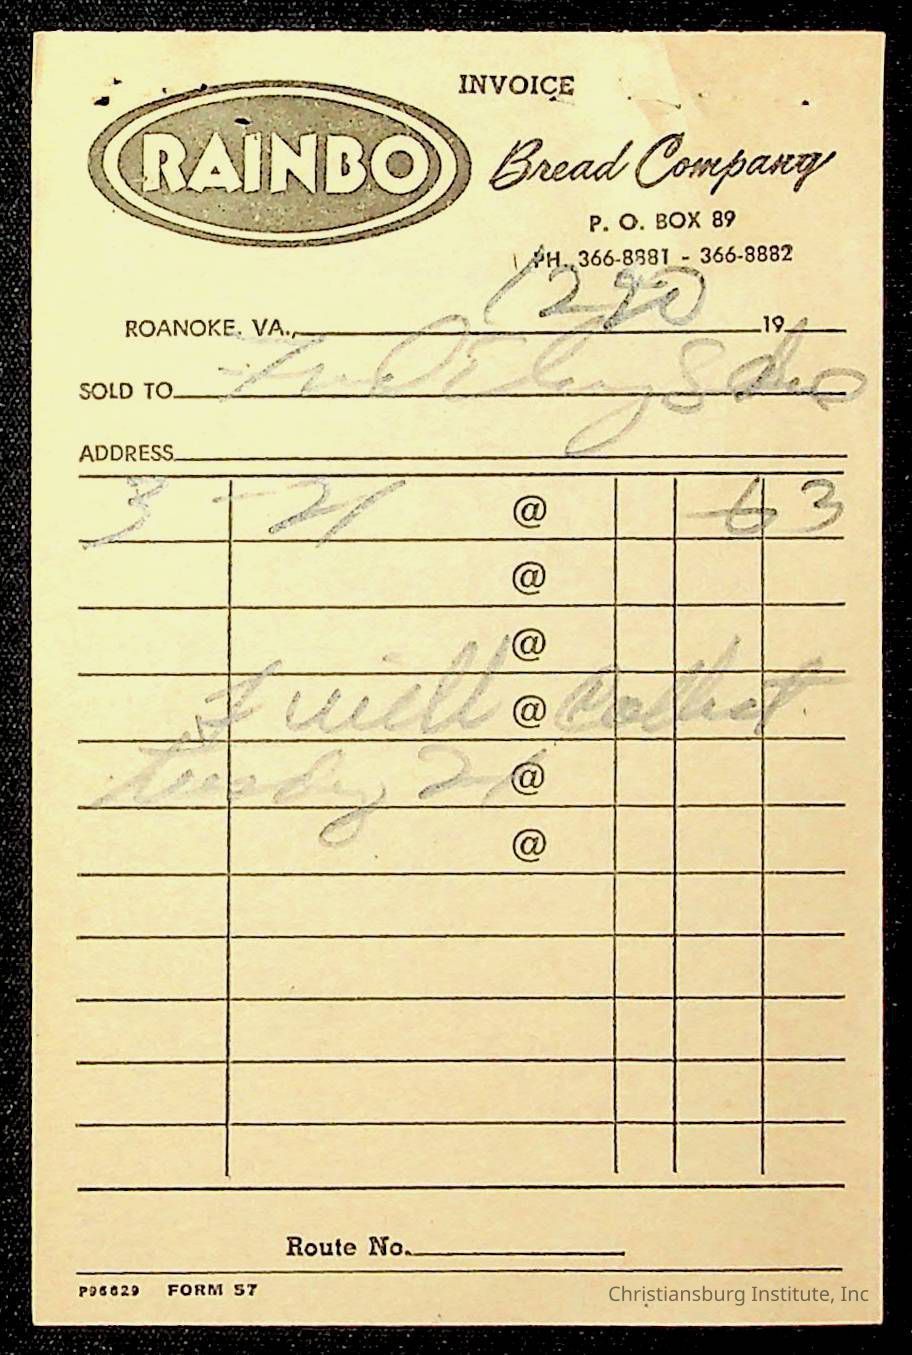 INVOICE
RAINBO
Bread Company
P. O. BOX 89
PH. 366-8881 - 366-8882
ROANOKE, VA., 19
SOLD TO
ADDRESS
3 - 21 @ 63
@
@
I will @ Collect
Tuesday 24 @
@
Route No.
P96629 FORM 57
Christiansburg Institute, Inc